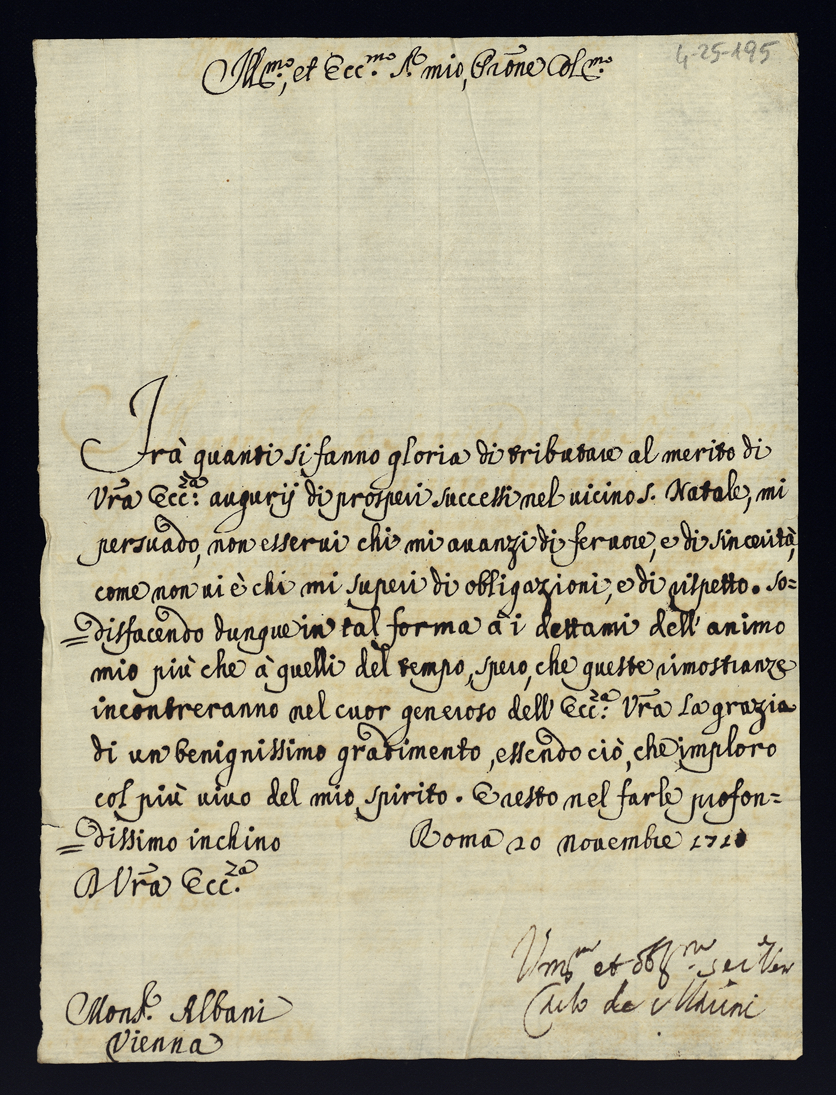 4-25-195
Ill.mo, et Ecc.mo S.r mio, Prone Col.mo
Trà quanti si fanno gloria di tributare al merito di
Vra Ecc.za augurij di prosperi successi nel vicino S. Natale, mi
persuado, non esservi chi mi avanzi di fervore, e di sincerità,
come non vi è chi mi superi di obligazioni, e di rispetto. So=
=disfacendo dunque in tal forma à i dettami dell'animo
mio più che à quelli del tempo, spero, che queste rimostranze
incontreranno nel cuor generoso dell'Ecc.za Vra la grazia
di un benignissimo gradimento, essendo ciò, che imploro
col più vivo del mio spirito. E resto nel farle profon=
=dissimo inchino Roma 20 novembre
A Vra Ecc.za
Um.mo et obb.mo
Carlo
Mons.r Albani
Vienna